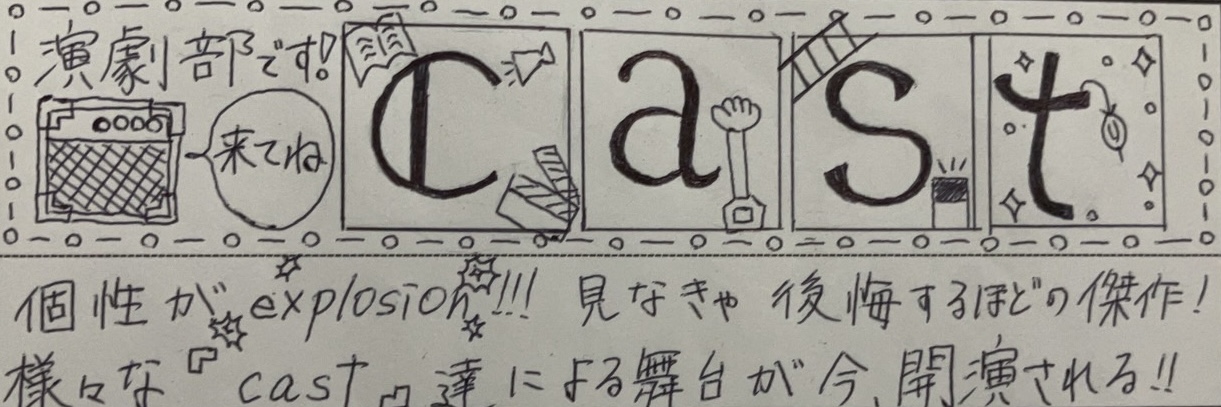 演劇部です!
来てね
Cast
個性がexplosion!!! 見なきゃ後悔するほどの傑作!
様々な『cast』達による舞台が今、開演される!!